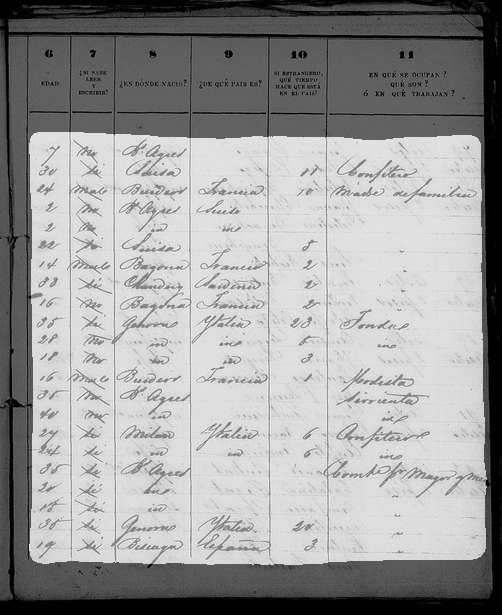 6 7 8 9 10 11
EDAD ¿SI SABE LEER Y ESCRIBIR? ¿EN DÓNDE NACIÓ? ¿DE QUÉ PAIS ES? SI ESTRANGERO, QUÉ TIEMPO HACE QUE ESTÁ EN EL PAIS? EN QUÉ SE OCUPAN? QUÉ SON? Ó EN QUÉ TRABAJAN?
7 No Bs Ayres
30 si Suisa 11 Confitero
24 Burdeos Francia 10 Madre de familia
2 No Bs Ayres Suiso
2 No in in
22 Suisa 8 "
14 Bayona Francia 2 "
33 si 2 "
16 No Bayona Francia 2 "
35 si Genova Ytalia 23 Fonda
28 No in in 5 in
18 No in in 3
16 Burdeos Francia 1 Modista
35 No Bs Ayres Sirvienta
40 No in in
27 si Milan Ytalia 6 Confitero
24 si in in 6 in
35 si Bs Ayres Comte por Mayor y
20 si in "
18 si in "
35 si Genova Ytalia 20 "
19 si Biscaya España 3 "